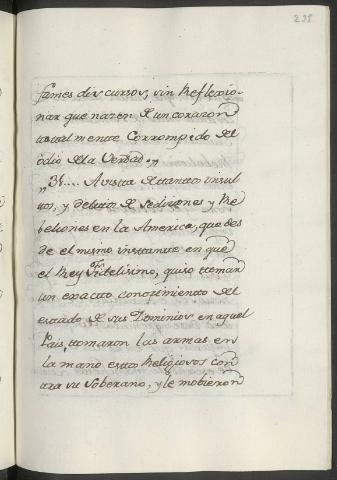 238
fames discursos, sin Reflexio-
nar que nazen de un corazon
totalmente Corrompido del
odio de la Verdad.„
„31.... A vista de tantos insul
tos, y delitos de Sediziones y Re
beliones en la America, que des
de el mismo instante en que
el Rey Fidelisimo, quiso tomar
un exacto conozimiento del
estado de sus Dominios en aquel
Pais, tomaron las armas en
la mano estos Religiosos con
tra su Soberano, y le mobieron